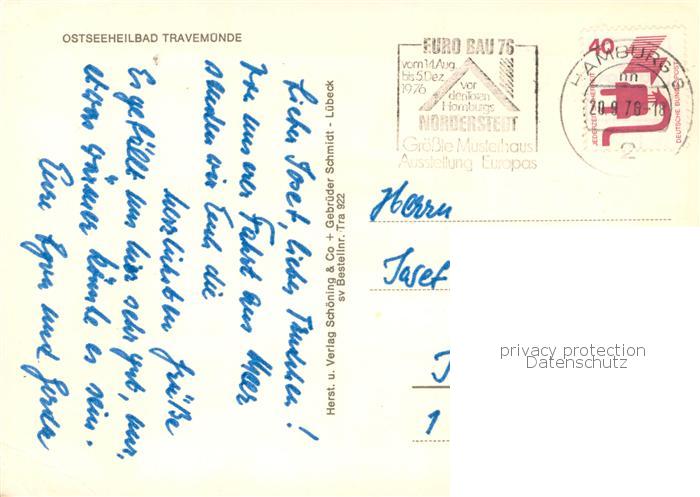 OSTSEEHEILBAD TRAVEMÜNDE
Lieber Josef, liebes Trudchen!
Von unserer Fahrt ans Meer
senden wir Euch die
herzlichsten Grüße
Es gefällt uns hier sehr gut, nur
etwas wärmer könnte es sein.
Eure Egon und Gerda
Herst. u. Verlag Schöning & Co + Gebrüder Schmidt - Lübeck
sv Bestellnr. Tra 922
EURO BAU 76
vom 14. Aug.
bis 5. Dez.
1976
vor
den Toren
Hamburgs
NORDERSTEDT
Größte Musterhaus
Ausstellung Europas
HAMBURG
20.9.76-18
2
40
JEDERZEIT SICHERHEIT
DEUTSCHE BUNDESPOST
Herrn
Josef
J
1
privacy protection
Datenschutz